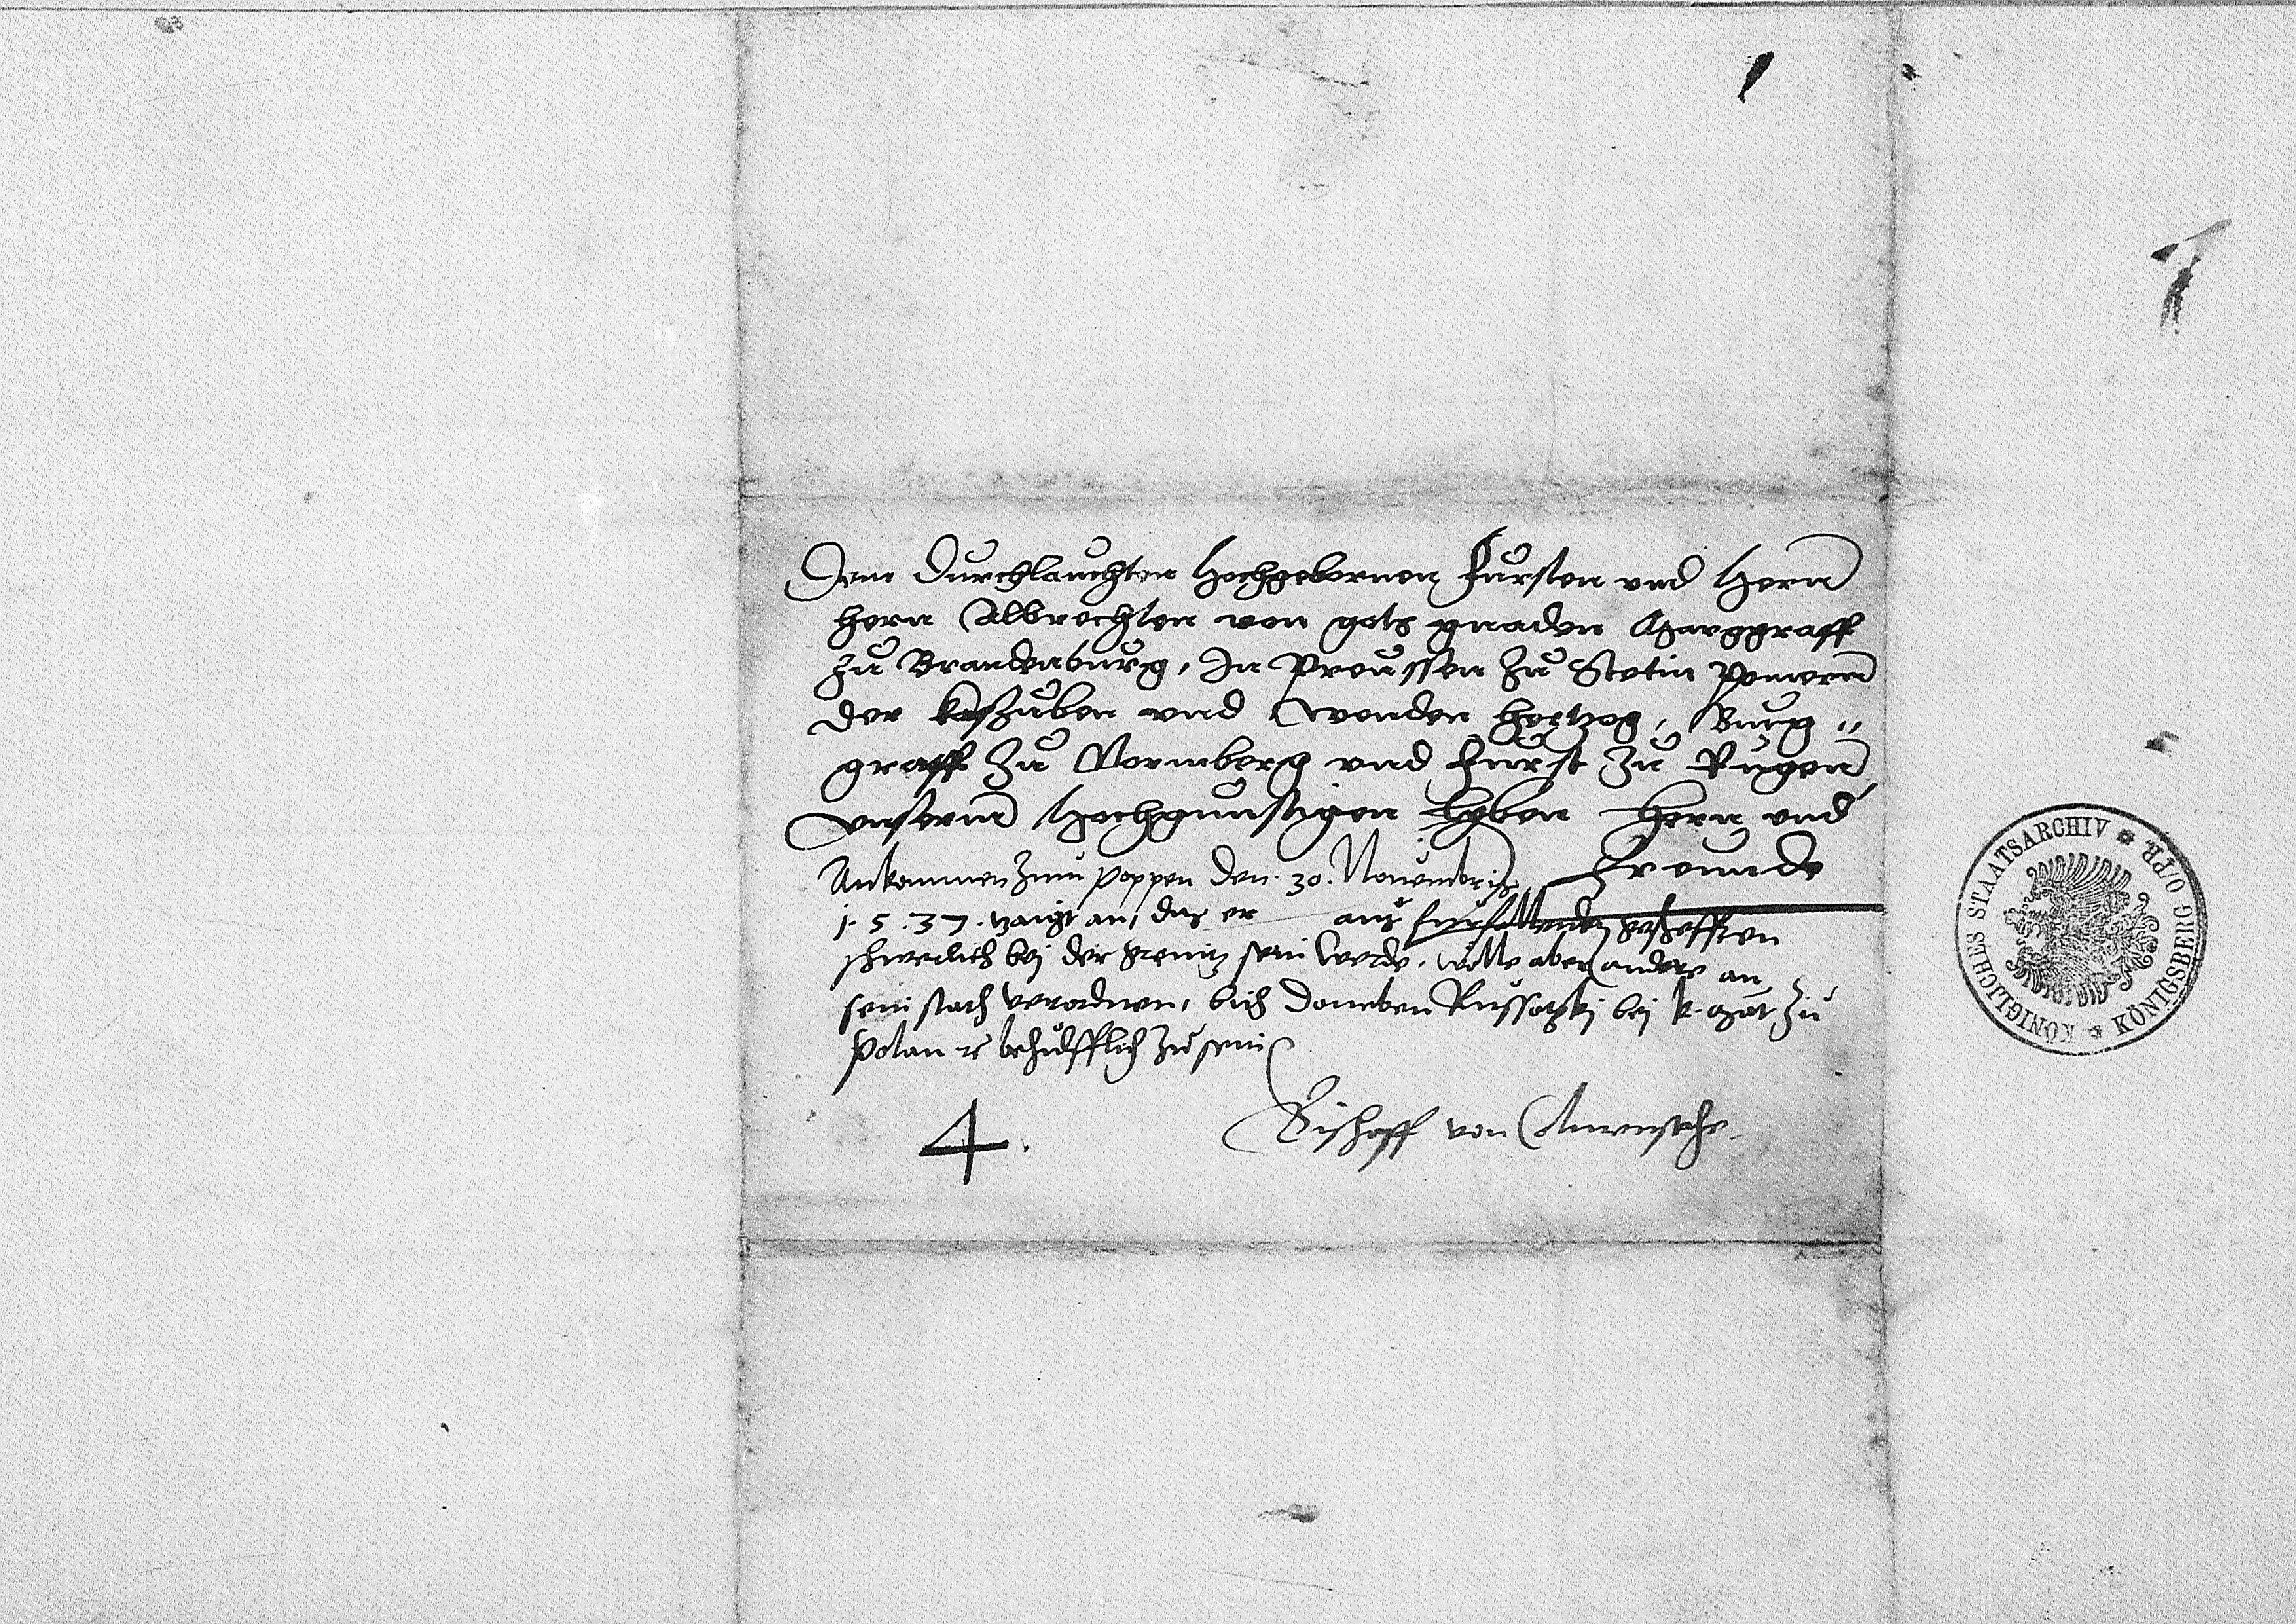 Dem Durchlauchten Hochgebornen Fursten vnd Hern
hern Albrechten von gots gnaden Marggraff
zu Brandenburg, In Preussen zu Stetin Pomern
der kaßuben vnd Wenden hertzog, Burg"
graff zu Normberg vnd Furst zu Rugen
vnserm Hochgunstigen lyben hern vnd
Freunde
Ankommen zum poppen den .30. Nouembris
1.5.37. zaigt an, das er aus furfallenden gescheften
schwerlich bej der grenitz sein werde, wolle aber andere an
sein stadt verordnen, dich daneben Russotzkj bej k. Mat zu
Polan ec behulfflich zu sein
4.
Bischoff von
KÖNIGLICHES STAATSARCHIV * KÖNIGSBERG O/PR. *